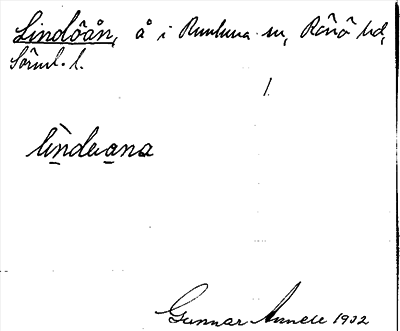 Lindöån, å i Runtuna sn, Rönö hd,
Sörml. l.
1.
lìndeana
Gunnar Linnell 1932